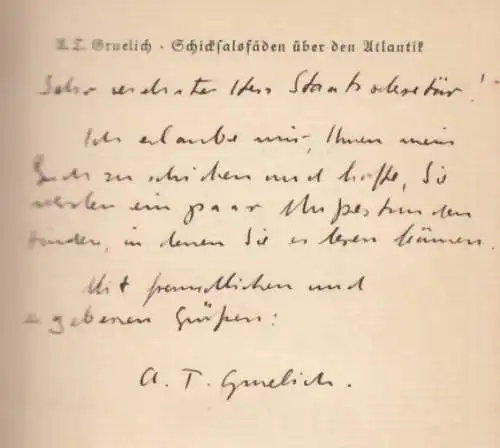 A. T. Gruelich · Schicksalsfäden über den Atlantik
Sehr verehrter Herr Staatssekretär!
Ich erlaube mir, Ihnen mein
Buch zu schicken und hoffe, Sie
werden ein paar Mußestunden
finden, in denen Sie es lesen können.
Mit freundlichen und
ergebenen Grüßen:
A. T. Gruelich.